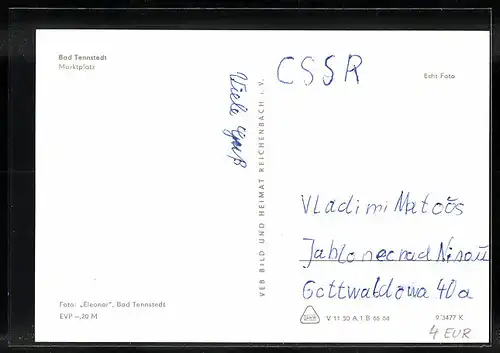 Bad Tennstedt
Marktplatz
CSSR
Echt Foto
Viele Gruß
VEB BILD UND HEIMAT REICHENBACH i. V.
Vladimi Matoŏs
Jablonecnad Nisou
Gottwaldova 40a
Foto: „Eleonor", Bad Tennstedt
EVP –,20 M
V 11 50 A 1 B 66 64
9/3477 K
4 EUR